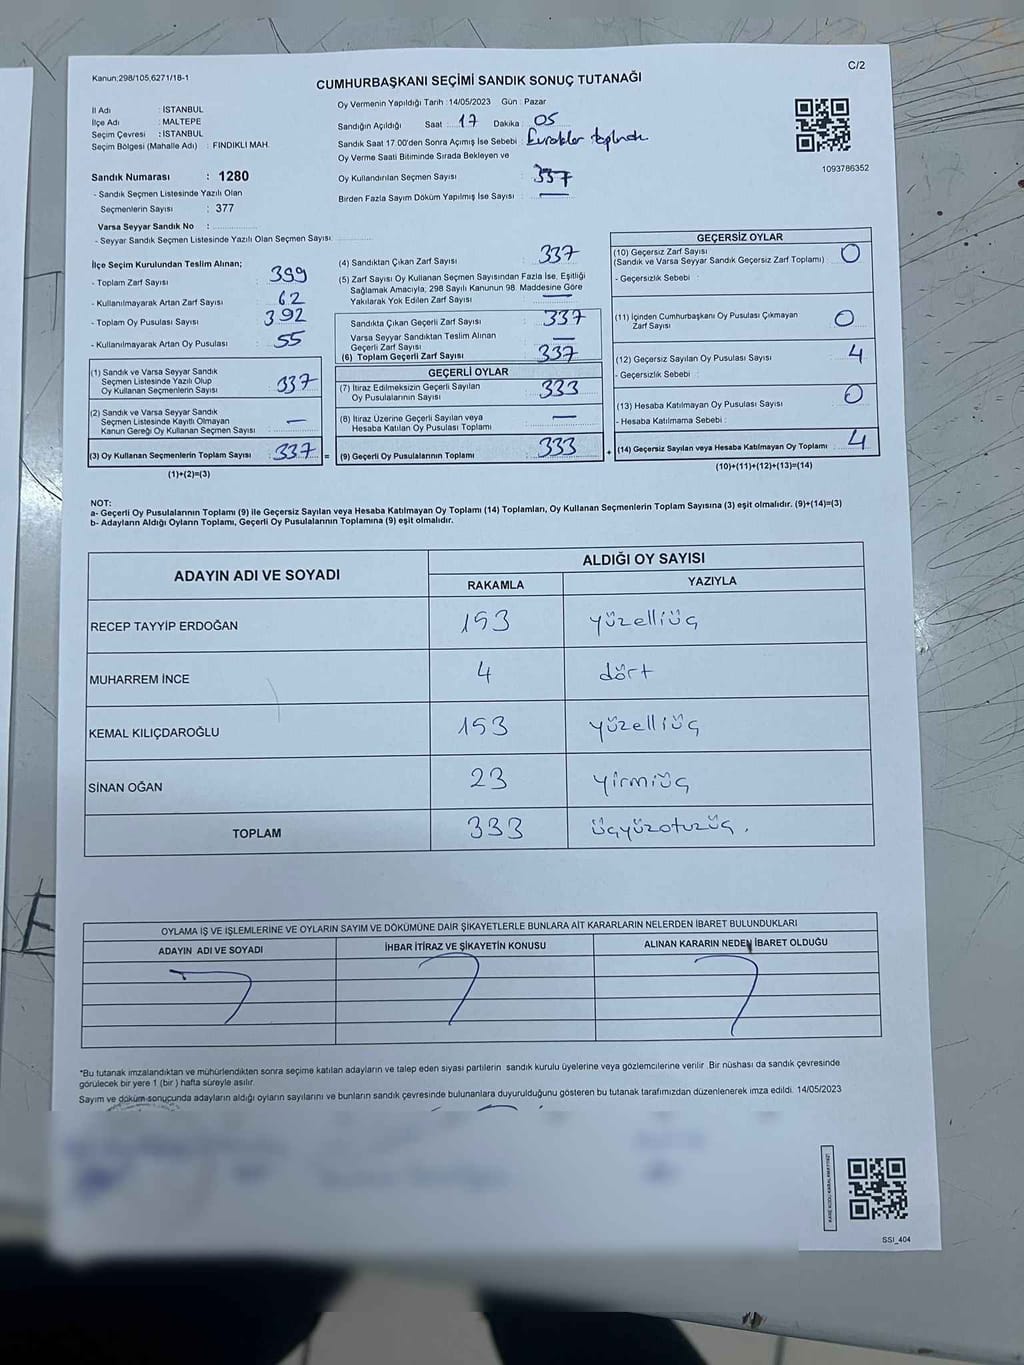 Kanun:298/105,6271/18-1
C/2
CUMHURBAŞKANI SEÇİMİ SANDIK SONUÇ TUTANAĞI
İl Adı : İSTANBUL
İlçe Adı : MALTEPE
Seçim Çevresi : İSTANBUL
Seçim Bölgesi (Mahalle Adı) : FINDIKLI MAH.
Sandık Numarası : 1280
- Sandık Seçmen Listesinde Yazılı Olan
Seçmenlerin Sayısı : 377
Varsa Seyyar Sandık No :
- Seyyar Sandık Seçmen Listesinde Yazılı Olan Seçmen Sayısı
Oy Vermenin Yapıldığı Tarih : 14/05/2023 Gün : Pazar
Sandığın Açıldığı Saat : 17 Dakika : 05
Sandık Saat 17.00'den Sonra Açımış İse Sebebi : Evraklar toplandı
Oy Verme Saati Bitiminde Sırada Bekleyen ve
Oy Kullandırılan Seçmen Sayısı : 337
Birden Fazla Sayım Döküm Yapılmış İse Sayısı : —
1093786352
İlçe Seçim Kurulundan Teslim Alınan;
- Toplam Zarf Sayısı : 399
- Kullanılmayarak Artan Zarf Sayısı : 62
- Toplam Oy Pusulası Sayısı : 392
- Kullanılmayarak Artan Oy Pusulası : 55
(1) Sandık ve Varsa Seyyar Sandık
Seçmen Listesinde Yazılı Olup
Oy Kullanan Seçmenlerin Sayısı : 337
(2) Sandık ve Varsa Seyyar Sandık
Seçmen Listesinde Kayıtlı Olmayan
Kanun Gereği Oy Kullanan Seçmen Sayısı : —
(3) Oy Kullanan Seçmenlerin Toplam Sayısı : 337 =
(1)+(2)=(3)
(4) Sandıktan Çıkan Zarf Sayısı : 337
(5) Zarf Sayısı Oy Kullanan Seçmen Sayısından Fazla İse, Eşitliği
Sağlamak Amacıyla, 298 Sayılı Kanunun 98. Maddesine Göre
Yakılarak Yok Edilen Zarf Sayısı : —
Sandıkta Çıkan Geçerli Zarf Sayısı : 337
Varsa Seyyar Sandıktan Teslim Alınan
Geçerli Zarf Sayısı : —
(6) Toplam Geçerli Zarf Sayısı : 337
GEÇERLİ OYLAR
(7) İtiraz Edilmeksizin Geçerli Sayılan
Oy Pusulalarının Sayısı : 333
(8) İtiraz Üzerine Geçerli Sayılan veya
Hesaba Katılan Oy Pusulası Toplamı : —
(9) Geçerli Oy Pusulalarının Toplamı : 333 +
GEÇERSİZ OYLAR
(10) Geçersiz Zarf Sayısı
(Sandık ve Varsa Seyyar Sandık Geçersiz Zarf Toplamı) : 0
- Geçersizlik Sebebi :
(11) İçinden Cumhurbaşkanı Oy Pusulası Çıkmayan
Zarf Sayısı : 0
(12) Geçersiz Sayılan Oy Pusulası Sayısı : 4
- Geçersizlik Sebebi :
(13) Hesaba Katılmayan Oy Pusulası Sayısı : 0
- Hesaba Katılmama Sebebi :
(14) Geçersiz Sayılan veya Hesaba Katılmayan Oy Toplamı : 4
(10)+(11)+(12)+(13)=(14)
NOT:
a- Geçerli Oy Pusulalarının Toplamı (9) ile Geçersiz Sayılan veya Hesaba Katılmayan Oy Toplamı (14) Toplamları, Oy Kullanan Seçmenlerin Toplam Sayısına (3) eşit olmalıdır. (9)+(14)=(3)
b- Adayların Aldığı Oyların Toplamı, Geçerli Oy Pusulalarının Toplamına (9) eşit olmalıdır.
ADAYIN ADI VE SOYADI
ALDIĞI OY SAYISI
RAKAMLA YAZIYLA
RECEP TAYYİP ERDOĞAN 153 yüzelliüç
MUHARREM İNCE 4 dört
KEMAL KILIÇDAROĞLU 153 yüzelliüç
SİNAN OĞAN 23 yirmiüç
TOPLAM 333 üçyüzotuzüç.
OYLAMA İŞ VE İŞLEMLERİNE VE OYLARIN SAYIM VE DÖKÜMÜNE DAİR ŞİKAYETLERLE BUNLARA AİT KARARLARIN NELERDEN İBARET BULUNDUKLARI
ADAYIN ADI VE SOYADI İHBAR İTİRAZ VE ŞİKAYETİN KONUSU ALINAN KARARIN NEDEN İBARET OLDUĞU
*Bu tutanak imzalandıktan ve mühürlendikten sonra seçime katılan adayların ve talep eden siyasi partilerin sandık kurulu üyelerine veya gözlemcilerine verilir. Bir nüshası da sandık çevresinde
görülecek bir yere 1 (bir ) hafta süreyle asılır.
Sayım ve döküm sonuçunda adayların aldığı oyların sayılarını ve bunların sandık çevresinde bulunanlara duyurulduğunu gösteren bu tutanak tarafımızdan düzenlenerek imza edildi. 14/05/2023
SSI_404